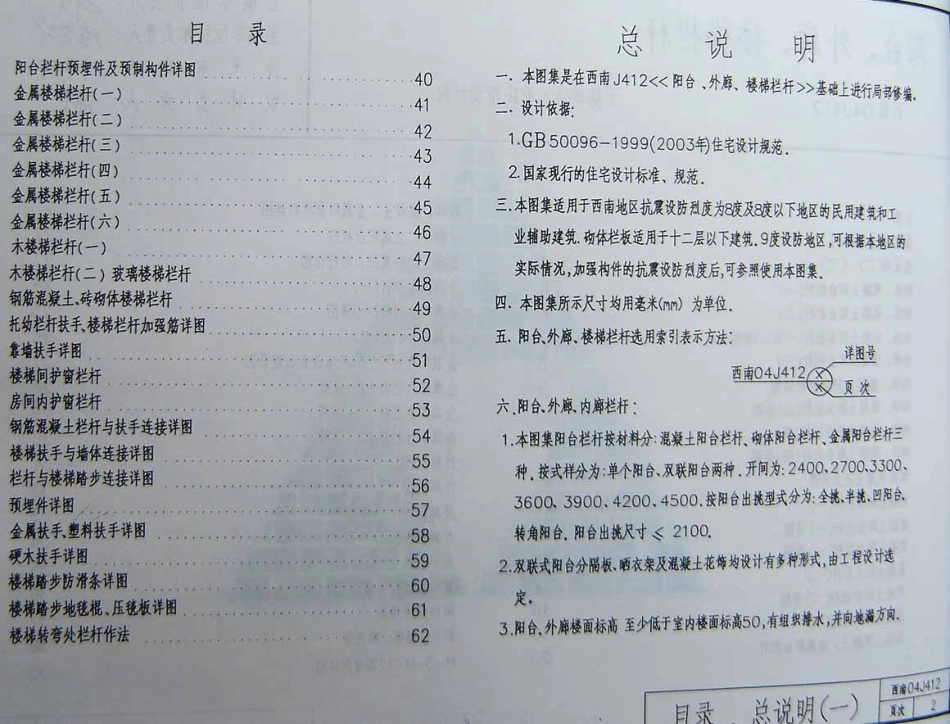 目 录
阳台栏杆预埋件及预制构件详图 40
金属楼梯栏杆(一) 41
金属楼梯栏杆(二) 42
金属楼梯栏杆(三) 43
金属楼梯栏杆(四) 44
金属楼梯栏杆(五) 45
金属楼梯栏杆(六) 46
木楼梯栏杆(一) 47
木楼梯栏杆(二) 玻璃楼梯栏杆 48
钢筋混凝土、砖砌体楼梯栏杆 49
托幼栏杆扶手、楼梯栏杆加强筋详图 50
靠墙扶手详图 51
楼梯间护窗栏杆 52
房间内护窗栏杆 53
钢筋混凝土栏杆与扶手连接详图 54
楼梯扶手与墙体连接详图 55
栏杆与楼梯踏步连接详图 56
预埋件详图 57
金属扶手、塑料扶手详图 58
硬木扶手详图 59
楼梯踏步防滑条详图 60
楼梯踏步地毯棍、压毯板详图 61
楼梯转弯处栏杆作法 62
总 说 明
一. 本图集是在西南J412<<阳台、外廊、楼梯栏杆>>基础上进行局部修编.
二. 设计依据:
1.GB50096-1999(2003年)住宅设计规范.
2.国家现行的住宅设计标准、规范.
三.本图集适用于西南地区抗震设防烈度为8度及8度以下地区的民用建筑和工
业辅助建筑.砌体栏板适用于十二层以下建筑.9度设防地区,可根据本地区的
实际情况,加强构件的抗震设防烈度后,可参照使用本图集.
四. 本图集所示尺寸均用毫米(mm) 为单位.
五. 阳台、外廊、楼梯栏杆选用索引表示方法:
详图号
西南04J412
页 次
六.阳台、外廊、内廊栏杆:
1.本图集阳台栏杆按材料分:混凝土阳台栏杆、砌体阳台栏杆、金属阳台栏杆三
种.按式样分为:单个阳台、双联阳台两种.开间为:2400、2700、3300、
3600、3900、4200、4500.按阳台出挑型式分为:全挑、半挑、凹阳台、
转角阳台. 阳台出挑尺寸≤ 2100.
2.双联式阳台分隔板、晒衣架及混凝土花饰均设计有多种形式,由工程设计选
定.
3.阳台、外廊楼面标高 至少低于室内楼面标高50,有组织排水,并向地漏方向、
目录 总说明(一)
西南04J412
页次 2